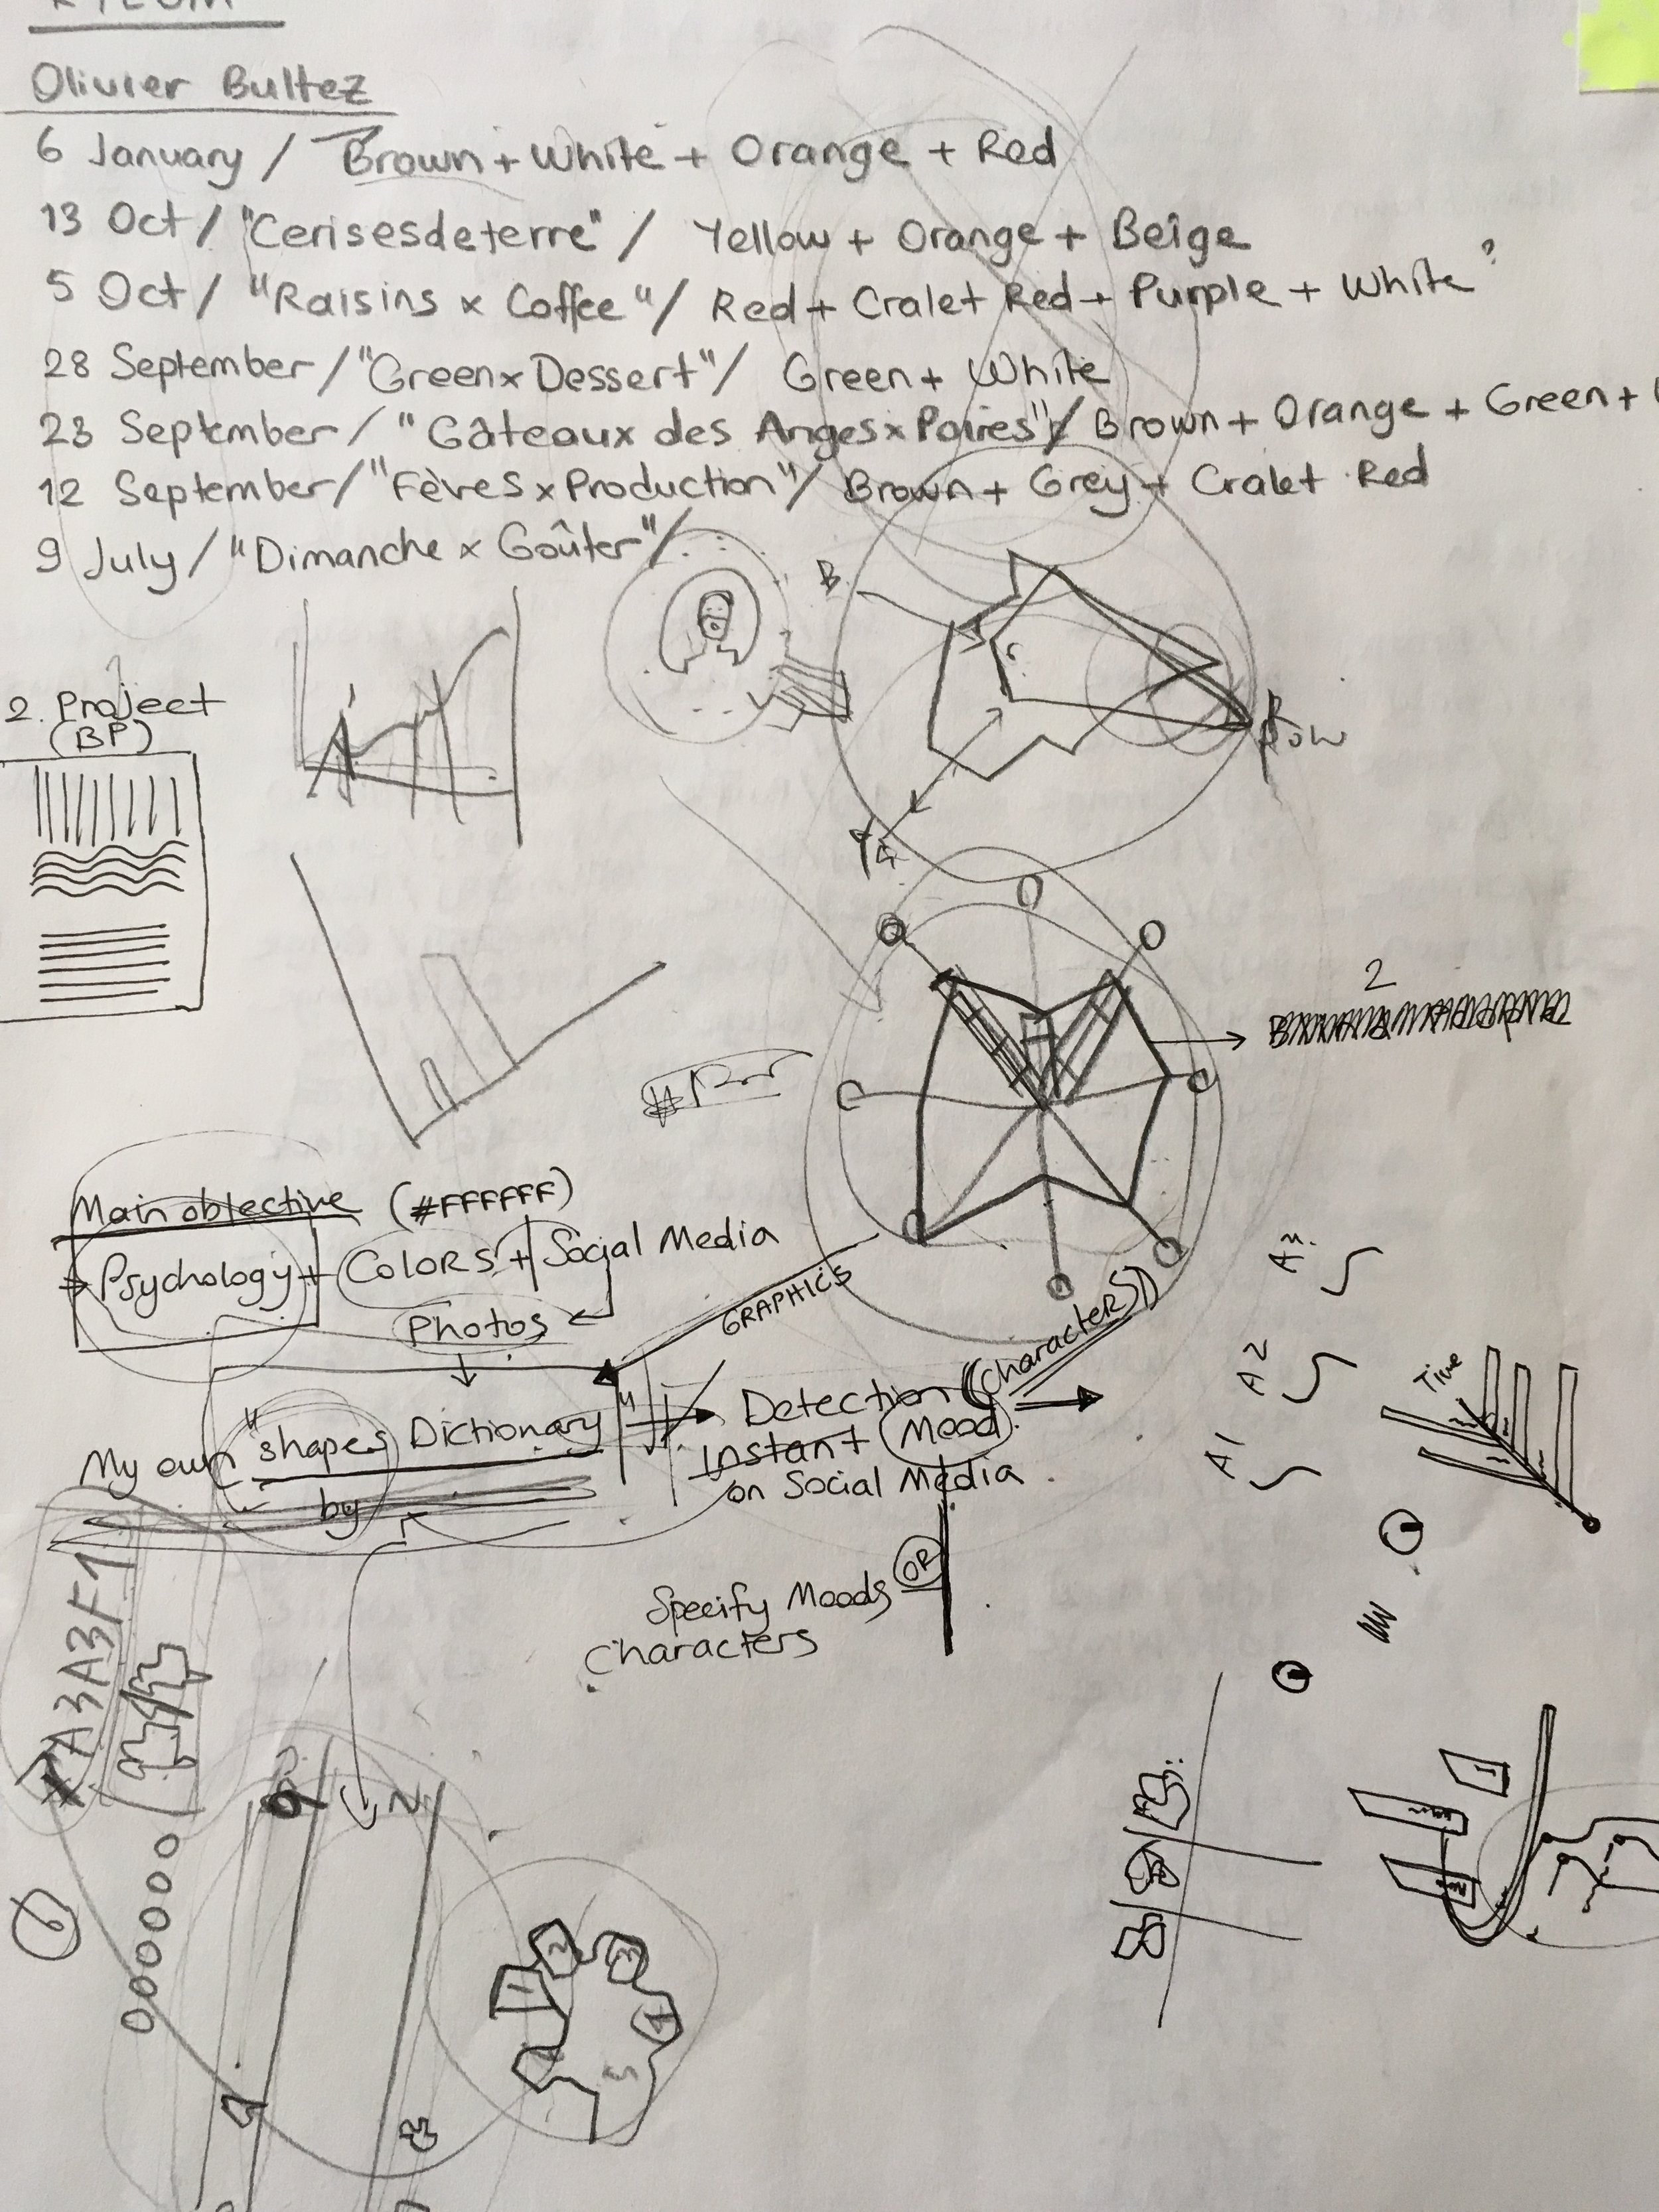 Olivier Bultez
6 January / Brown + White + Orange + Red
13 Oct / "Cerisesdeterre" / Yellow + Orange + Beige
5 Oct / "Raisins x Coffee" / Red + Cralet Red + Purple + White ?
28 September / "Green x Dessert" / Green + White
23 September / "Gâteaux des Anges x Poires" / Brown + Orange + Green +
12 September / "Fèves x Production" / Brown + Grey + Cralet Red
9 July / "Dimanche x Goûter" /
B
2. Project
(BP)
2
Main objective (#FFFFFF)
Psychology + Colors + Social Media
Photos
GRAPHICS
My own "shapes Dictionary"
by
Detection (Character)
instant Mood
on Social Media
OR
Specify Moods
Characters
A1
A2
Time
7A3A3F1
000000
6
1
2
3
4
5